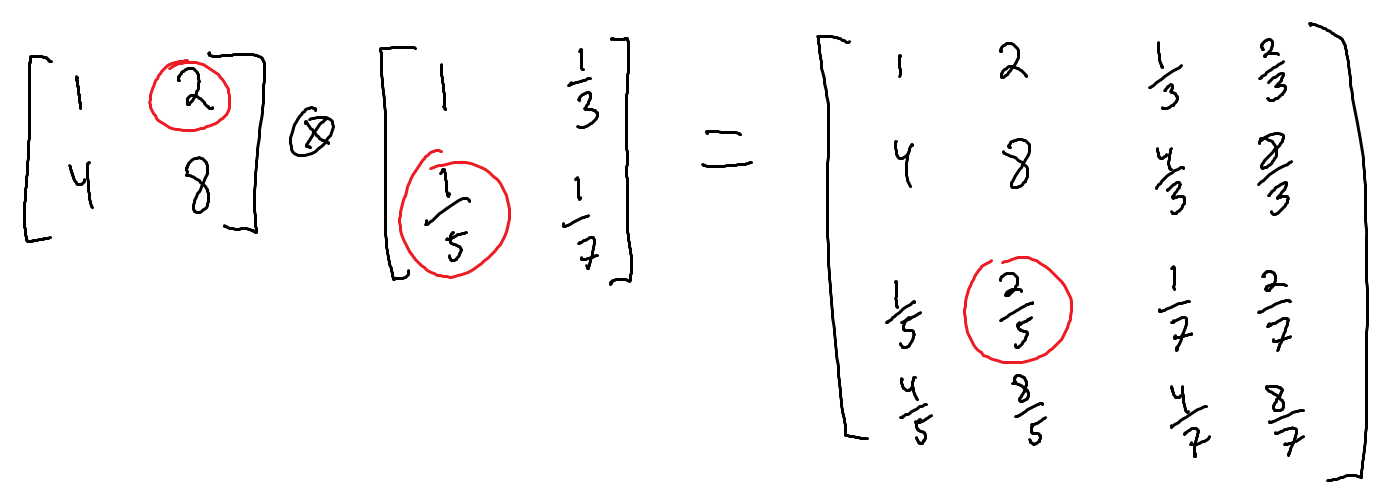 [1 2; 4 8] ⊗ [1 1/3; 1/5 1/7] = [1 2 1/3 2/3; 4 8 4/3 8/3; 1/5 2/5 1/7 2/7; 4/5 8/5 4/7 8/7]